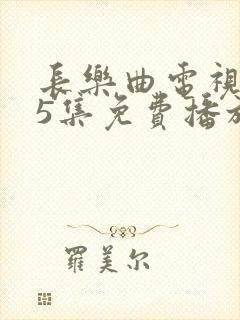 長樂曲電視
5集免費播放
羅美尔